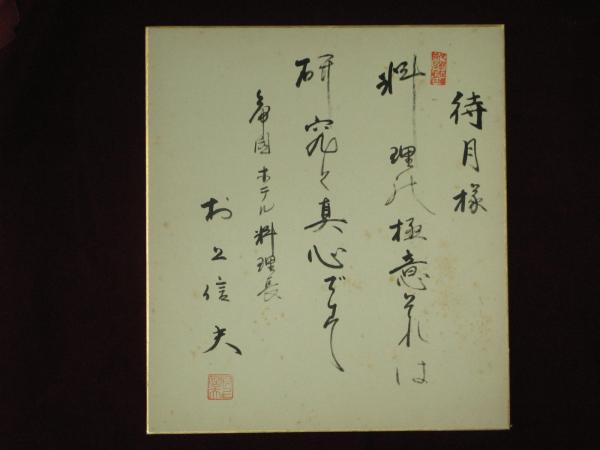 待月様
料理の極意それは
研究と真心です
帝国ホテル料理長
村上信夫